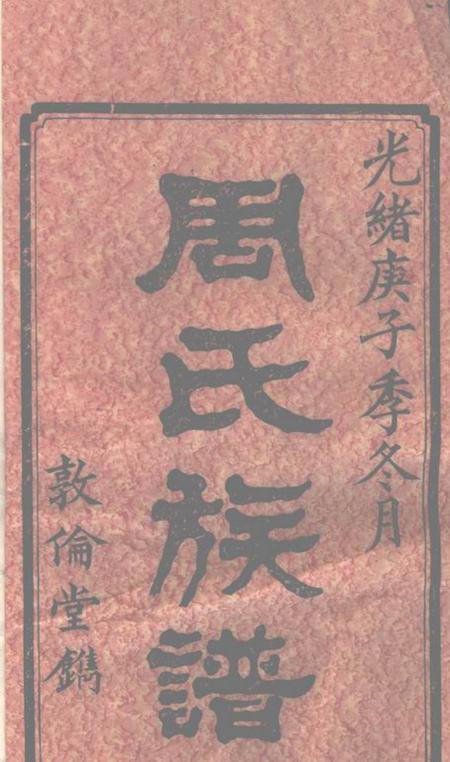 光緒庚子季冬月
周氏族譜
敦倫堂鐫